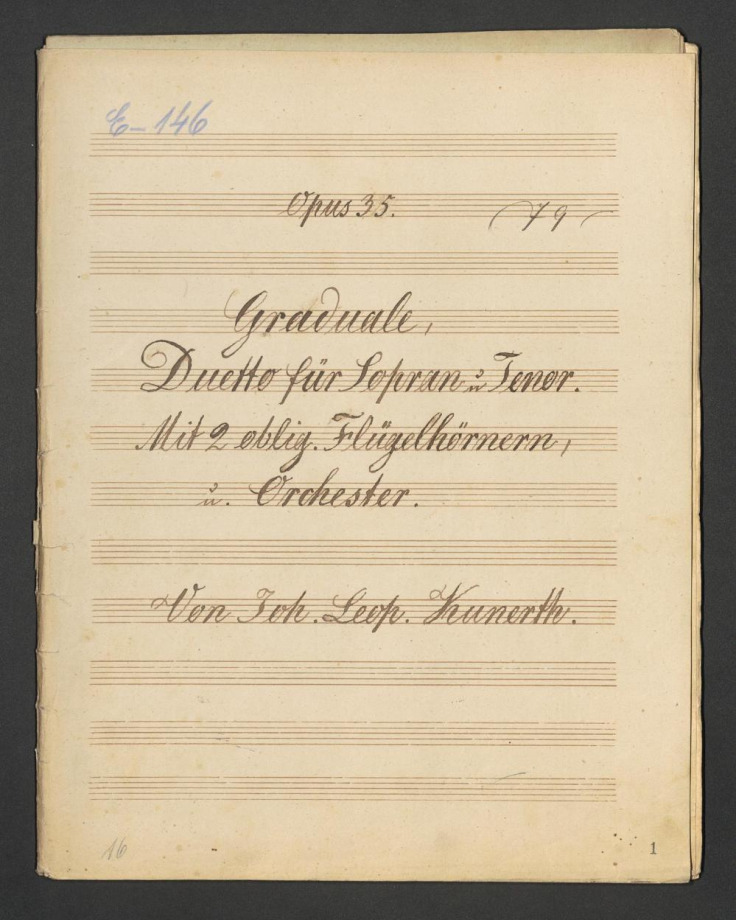 E–146
Opus 35. 79
Graduale,
Duetto für Sopran u Tenor.
Mit 2 oblig. Flügelhörnern,
u. Orchester.
Von Joh. Leop. Kunerth.
16 1